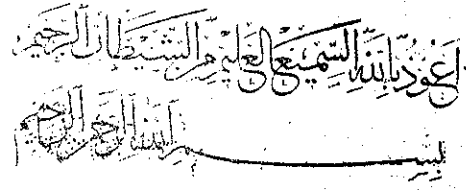 اعوذ بالله السميع العليم من الشيطان الرجيم
بسم الله الرحمن الرحيم